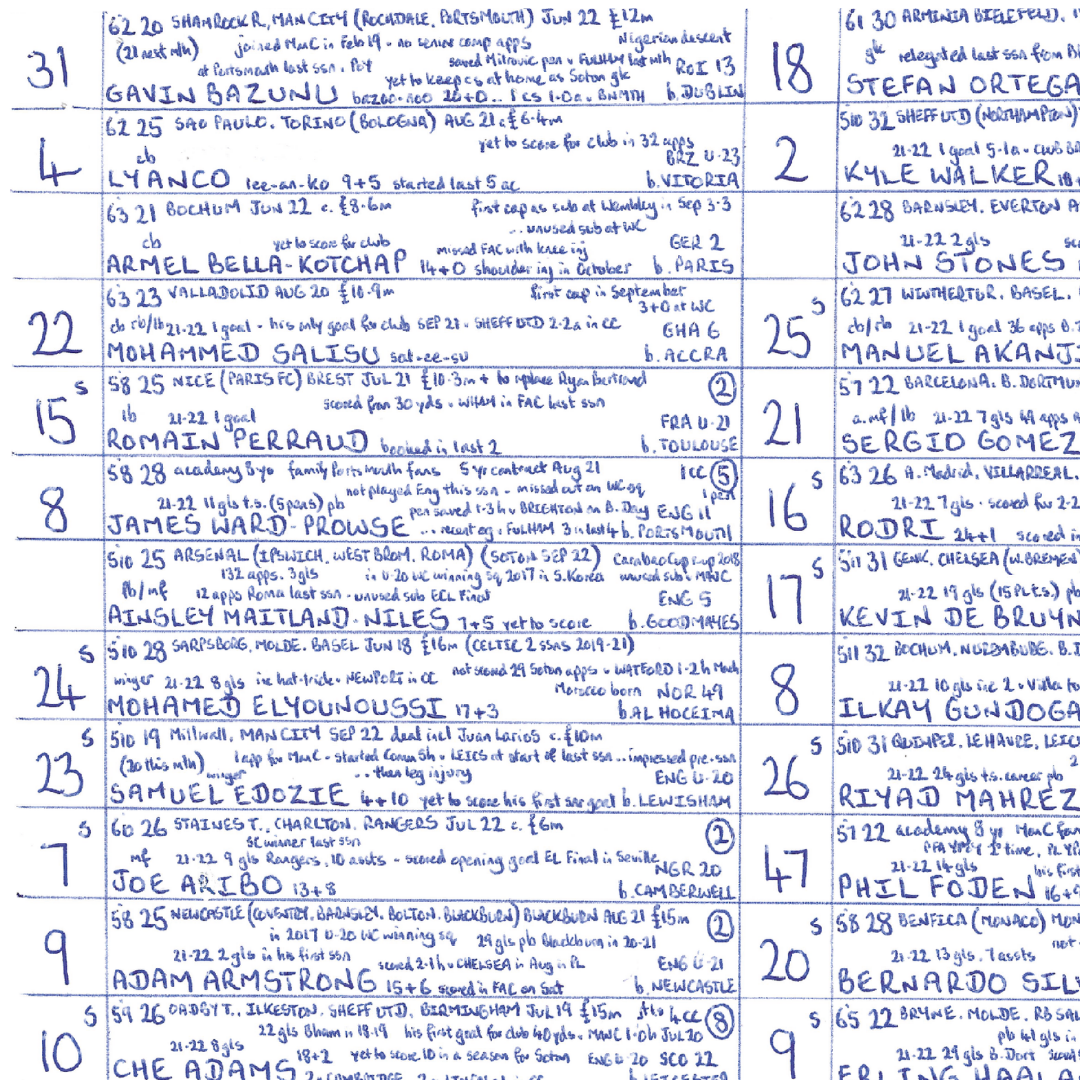 31
62 20 SHAMROCK R, MAN CITY (ROCHDALE, PORTSMOUTH) JUN 22 £12m
(21 next mth) joined ManC in Feb 19 - no senior comp apps Nigerian descent
at Portsmouth last ssn. PoY saved Mitrovic pen v FULHAM last mth RoI 13
yet to keep cs at home as Soton gk
GAVIN BAZUNU bazoo-noo 20+0... 1 cs 1-0a v BNMTH b. DUBLIN
4
62 25 SAO PAULO, TORINO (BOLOGNA) AUG 21 c. £6.4m
yet to score for club in 32 apps
cb BRZ U-23
LYANCO lee-an-ko 9+5 started last 5 ac b. VITORIA
63 21 BOCHUM JUN 22 c. £8.6m first cap as sub at Wembley in Sep 3-3
...unused sub at WC
cb yet to score for club missed FAC with knee inj GER 2
ARMEL BELLA-KOTCHAP 14+0 shoulder inj in October b. PARIS
22
63 23 VALLADOLID AUG 20 £10.9m first cap in September
3+0 at WC
cb rb/lb 21-22 1 goal - his only goal for club SEP 21 - SHEFF UTD 2-2a in CC GHA 6
MOHAMMED SALISU sal-ee-su b. ACCRA
15 s
58 25 NICE (PARIS FC) BREST JUL 21 £10.3m + to replace Ryan Bertrand 2
scored from 30 yds v WHAM in FAC last ssn
lb 21-22 1 goal FRA U-21
ROMAIN PERRAUD booked in last 2 b. TOULOUSE
8
58 28 academy 8 yo family Portsmouth fans 5 yr contract Aug 21 1 CC 5
not played Eng this ssn - missed out on WC sq 1 pen
21-22 11 gls t.s. (5 pens) pb pen saved 1-3 h v BRIGHTON on B. Day ENG 11
JAMES WARD-PROWSE ...recent eg v FULHAM 3 in last 4 b. PORTSMOUTH
510 25 ARSENAL (IPSWICH, WEST BROM, ROMA) (SOTON SEP 22) Carabao Cup r-up 2018
132 apps. 3 gls in U-20 WC winning sq 2017 in S. Korea unused sub v MANC
rb/mf 12 apps Roma last ssn - unused sub ECL Final ENG 5
AINSLEY MAITLAND-NILES 7+5 yet to score b. GOODMAYES
24 s
510 28 SARPSBORG, MOLDE, BASEL JUN 18 £16m (CELTIC 2 SSNS 2019-21)
not scored 29 Soton apps v WATFORD 1-2 h Mach
winger 21-22 8 gls inc hat-trick v NEWPORT in CC Morocco born NOR 49
MOHAMED ELYOUNOUSSI 17+3 b. AL HOCEIMA
23 s
510 19 Millwall, MAN CITY SEP 22 deal incl Juan Larios c. £10m
(20 this mth) 1 app for ManC - started Comm Sh v LEICS at start of last ssn...impressed pre-ssn
winger ...then leg injury ENG U-20
SAMUEL EDOZIE 4+10 yet to score his first snr goal b. LEWISHAM
7 s
60 26 STAINES T., CHARLTON, RANGERS JUL 22 c. £6m 2
SC winner last ssn
mf 21-22 9 gls Rangers, 10 assts - scored opening goal EL Final in Seville NGR 20
JOE ARIBO 13+8 b. CAMBERWELL
9
58 25 NEWCASTLE (COVENTRY, BARNSLEY, BOLTON, BLACKBURN) BLACKBURN AUG 21 £15m 2
in 2017 U-20 WC winning sq 29 gls pb Blackburn in 20-21
21-22 2 gls in his first ssn scored 2-1 h v CHELSEA in Aug in PL ENG U-21
ADAM ARMSTRONG 15+6 scored in FAC on Sat b. NEWCASTLE
10 s
59 26 OADBY T., ILKESTON, SHEFF UTD, BIRMINGHAM JUL 19 £15m 4 CC 8
22 gls Bham in 18-19 his first goal for club 40 yds v MANC 1-0 h JUL 20
21-22 8 gls 18+2 yet to score 10 in a season for Soton ENG U-20 SCO 22
CHE ADAMS
18
61 30 ARMINIA BIELEFELD,
gk relegated last ssn from
STEFAN ORTEGA
2
510 32 SHEFF UTD (NORTHAMPTON)
21-22 1 goal 5-1a v CLUB
KYLE WALKER
62 28 BARNSLEY, EVERTON
21-22 2 gls
JOHN STONES
25 s
62 27 WINTERTHUR, BASEL,
cb/rb 21-22 1 goal 36 apps
MANUEL AKANJI
21
57 22 BARCELONA, B. DORTMUN
a.mf/lb 21-22 7 gls 49 apps
SERGIO GOMEZ
16 s
63 26 A. Madrid, VILLARREAL,
21-22 7 gls - scored for 2-2
RODRI 24+1 scored in
17 s
511 31 GENK, CHELSEA (W. BREMEN
21-22 19 gls (15 PL t.s.) pb
KEVIN DE BRUYN
8
511 32 BOCHUM, NUREMBURG, B.
21-22 10 gls inc 2 v Villa to
ILKAY GUNDOGA
26 s
510 31 QUIMPER, LE HAVRE, LEIC
21-22 24 gls t.s. career pb
RIYAD MAHREZ
47
57 22 academy 8 yo ManC fan
PFA YPOY 2nd time, PL YP
21-22 14 gls his first
PHIL FODEN 16+9
20 s
58 28 BENFICA (MONACO) MON
not
21-22 13 gls. 7 assts
BERNARDO SIL
9 s
65 22 BRYNE, MOLDE, RB SAL
pb 41 gls in
21-22 29 gls B. Dort
ERLING HAALA